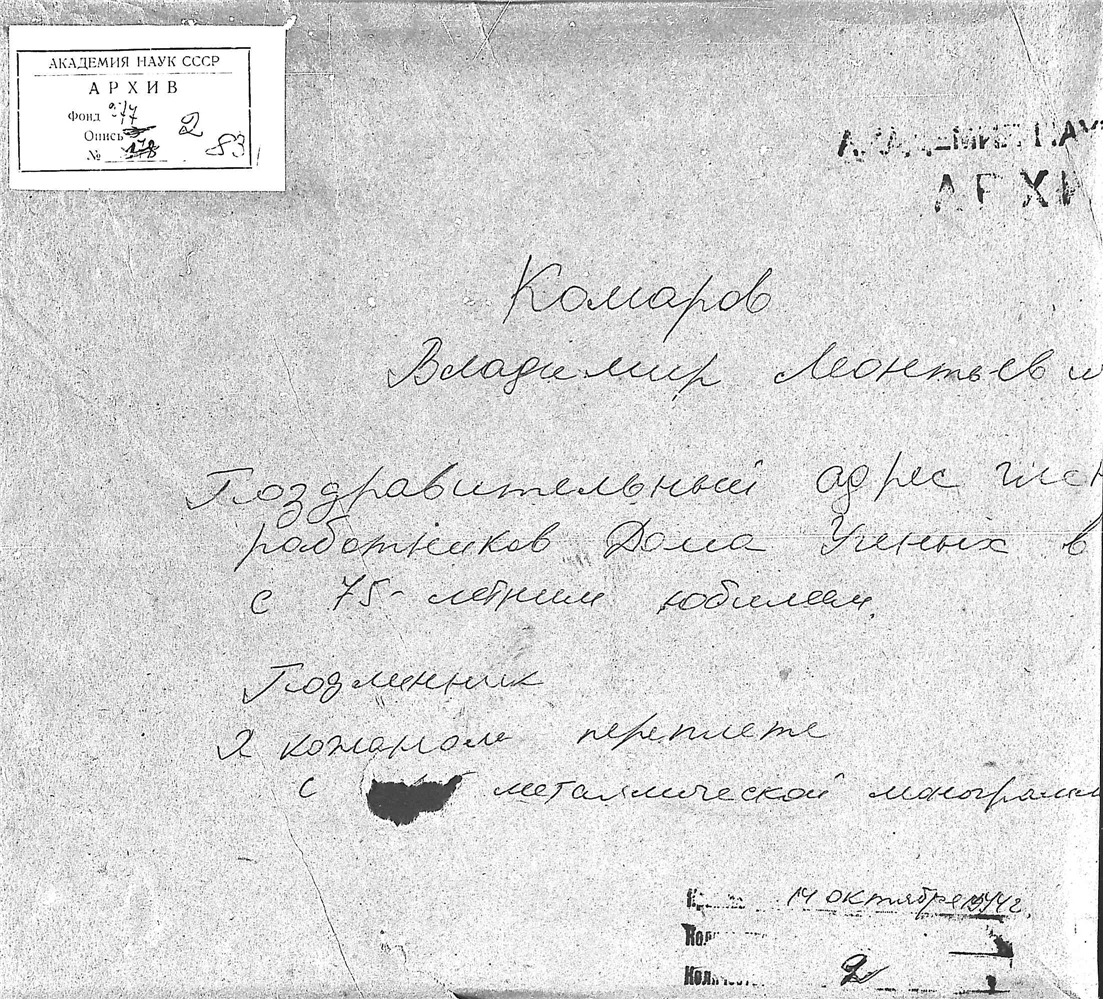 АКАДЕМИЯ НАУК СССР
АРХИВ
Фонд 77
Опись 2
№ 83
АКАДЕМИЯ НАУ
АРХИ
Комаров
Владимир Леонтьеви
Поздравительный адрес член
работников Дома Ученых в
с 75-летним юбилеем.
Подлинник
В кожаном переплете
с металлической монограмм
14 октября 1944 г.
Количест
2